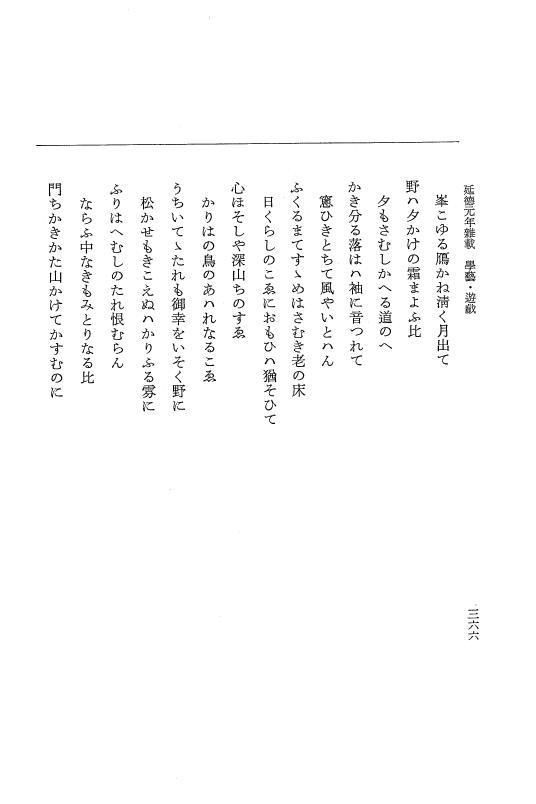 延德元年雜載　學藝・遊戲
峯こゆる鴈かね淸く月出て
野ハ夕かけの霜まよふ比
夕もさむしかへる道のへ
かき分る落はハ袖に音つれて
窻ひきとちて風やいとハん
ふくるまてすゝめはさむき老の床
日くらしのこゑにおもひハ猶そひて
心ほそしや深山ちのすゑ
かりはの鳥のあハれなるこゑ
うちいてゝたれも御幸をいそく野に
松かせもきこえぬハかりふる雰に
ふりはへむしのたれ恨むらん
ならふ中なきもみとりなる比
門ちかきかた山かけてかすむのに
三六六